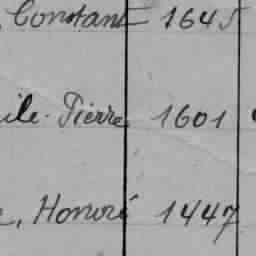 Constant 1645
ile-Pierre 1601
e, Honoré 1447